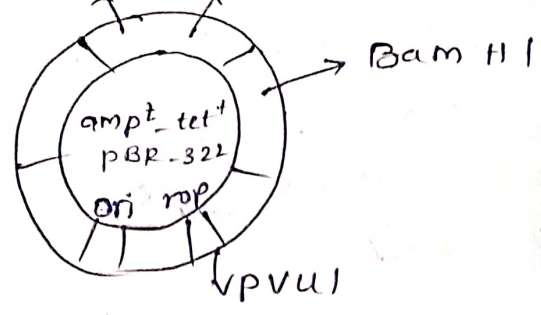 Bam H I
amp^r_tet^r
PBR-322
ori rop
PVUI